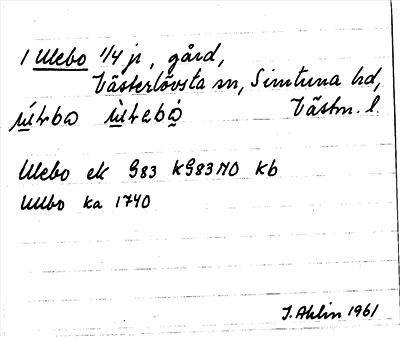 1 Ulebo 1/4 jr, gård,
Västerlövsta sn, Simtuna hd,
Västm. l.
Ulebo ek G83 KG83 NO Kb
Ullbo ka 1740
J. Ahlin 1961